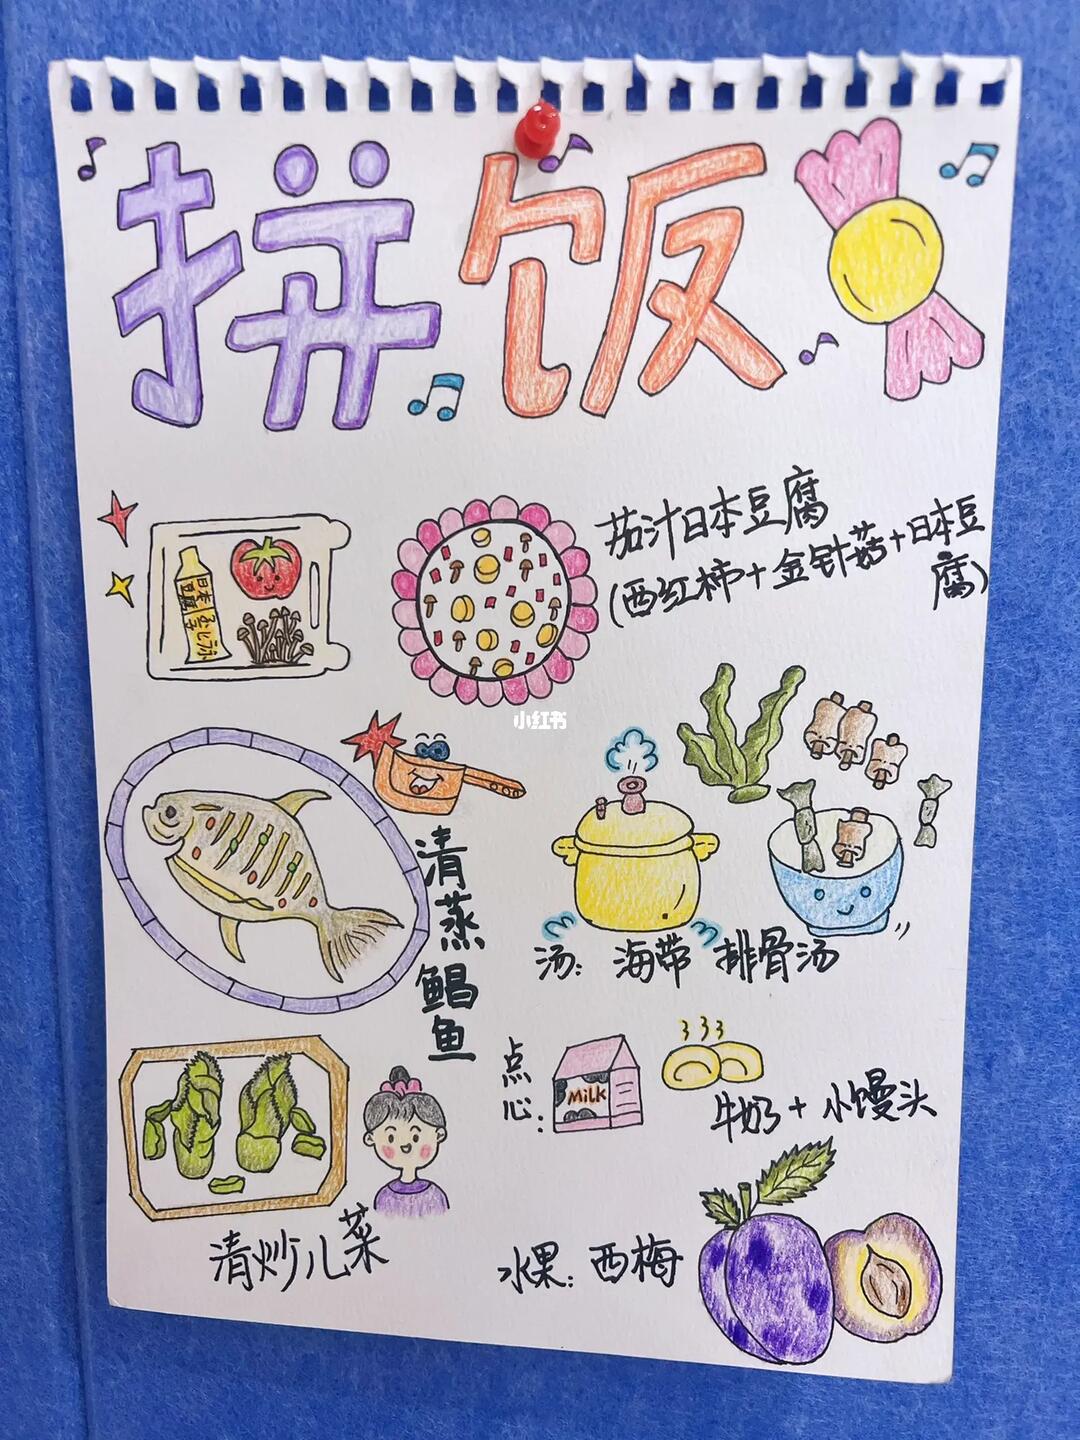 拼饭
茄汁日本豆腐
(西红柿+金针菇+日本豆
腐)
日本
豆腐
小红书
清
蒸
鲳
鱼
汤：海带 排骨汤
点
心：
MiLK
牛奶 + 小馒头
清炒儿菜
水果：西梅